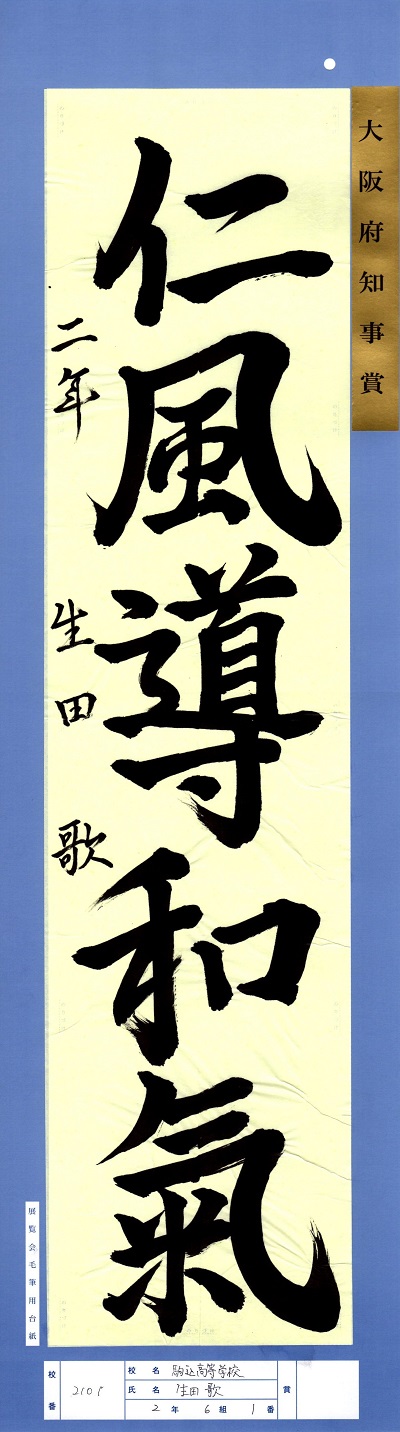 大阪府知事賞
仁風導和氣
二年 生田 歌
展覧会毛筆用台紙
校番 2101
校名 駒込高等学校
氏名 生田 歌
2年 6組 1番
賞